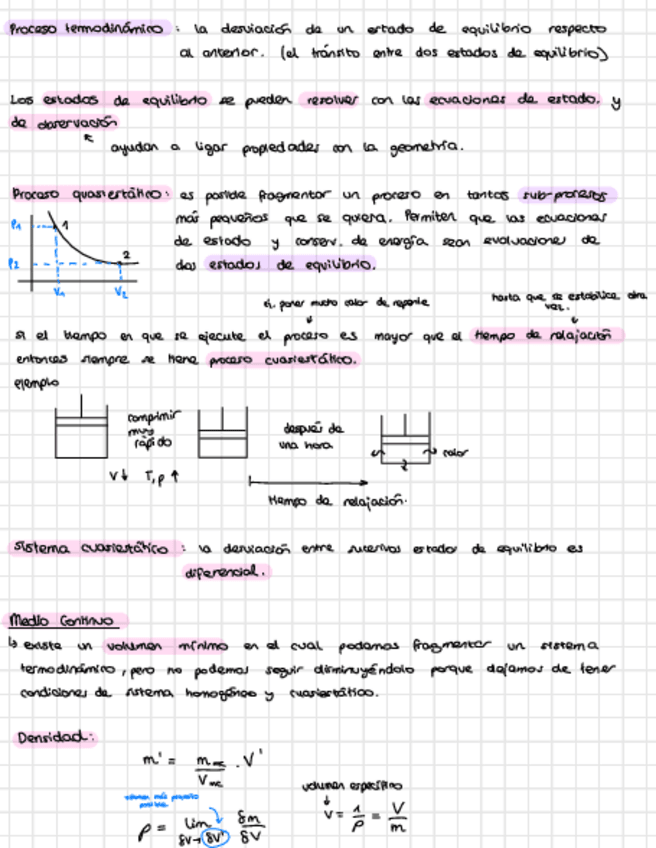 Proceso termodinámico: la desviación de un estado de equilibrio respecto
al anterior. (el tránsito entre dos estados de equilibrio)
Los estados de equilibrio se pueden resolver con las ecuaciones de estado. y
de observación
ayudan a ligar propiedades con la geometría.
Proceso quasiestático: es posible fragmentar un proceso en tantos sub-procesos
más pequeños que se quiera. Permiten que las ecuaciones
de estado y conserv. de energía sean evaluaciones de
dos estados de equilibrio.
P1 1
P2 2
V1 V2
ej. poner mucho calor de repente
hasta que se estabilice otra
vez.
si el tiempo en que se ejecute el proceso es mayor que el tiempo de relajación
entonces siempre se tiene proceso cuasiestático.
ejemplo
comprimir
muy
rápido
después de
una hora
calor
V↓ T, p ↑
tiempo de relajación.
Sistema cuasiestático: la desviación entre sucesivos estados de equilibrio es
diferencial.
Medio Continuo
↳ existe un volumen mínimo en el cual podamos fragmentar un sistema
termodinámico, pero no podemos seguir disminuyéndolo porque dejamos de tener
condiciones de sistema homogéneo y cuasiestático.
Densidad:
m' = m_mc / V_mc . V'
volumen más pequeño
posible
volumen específico
ρ = lim δV→δV' δm/δV
v = 1/ρ = V/m